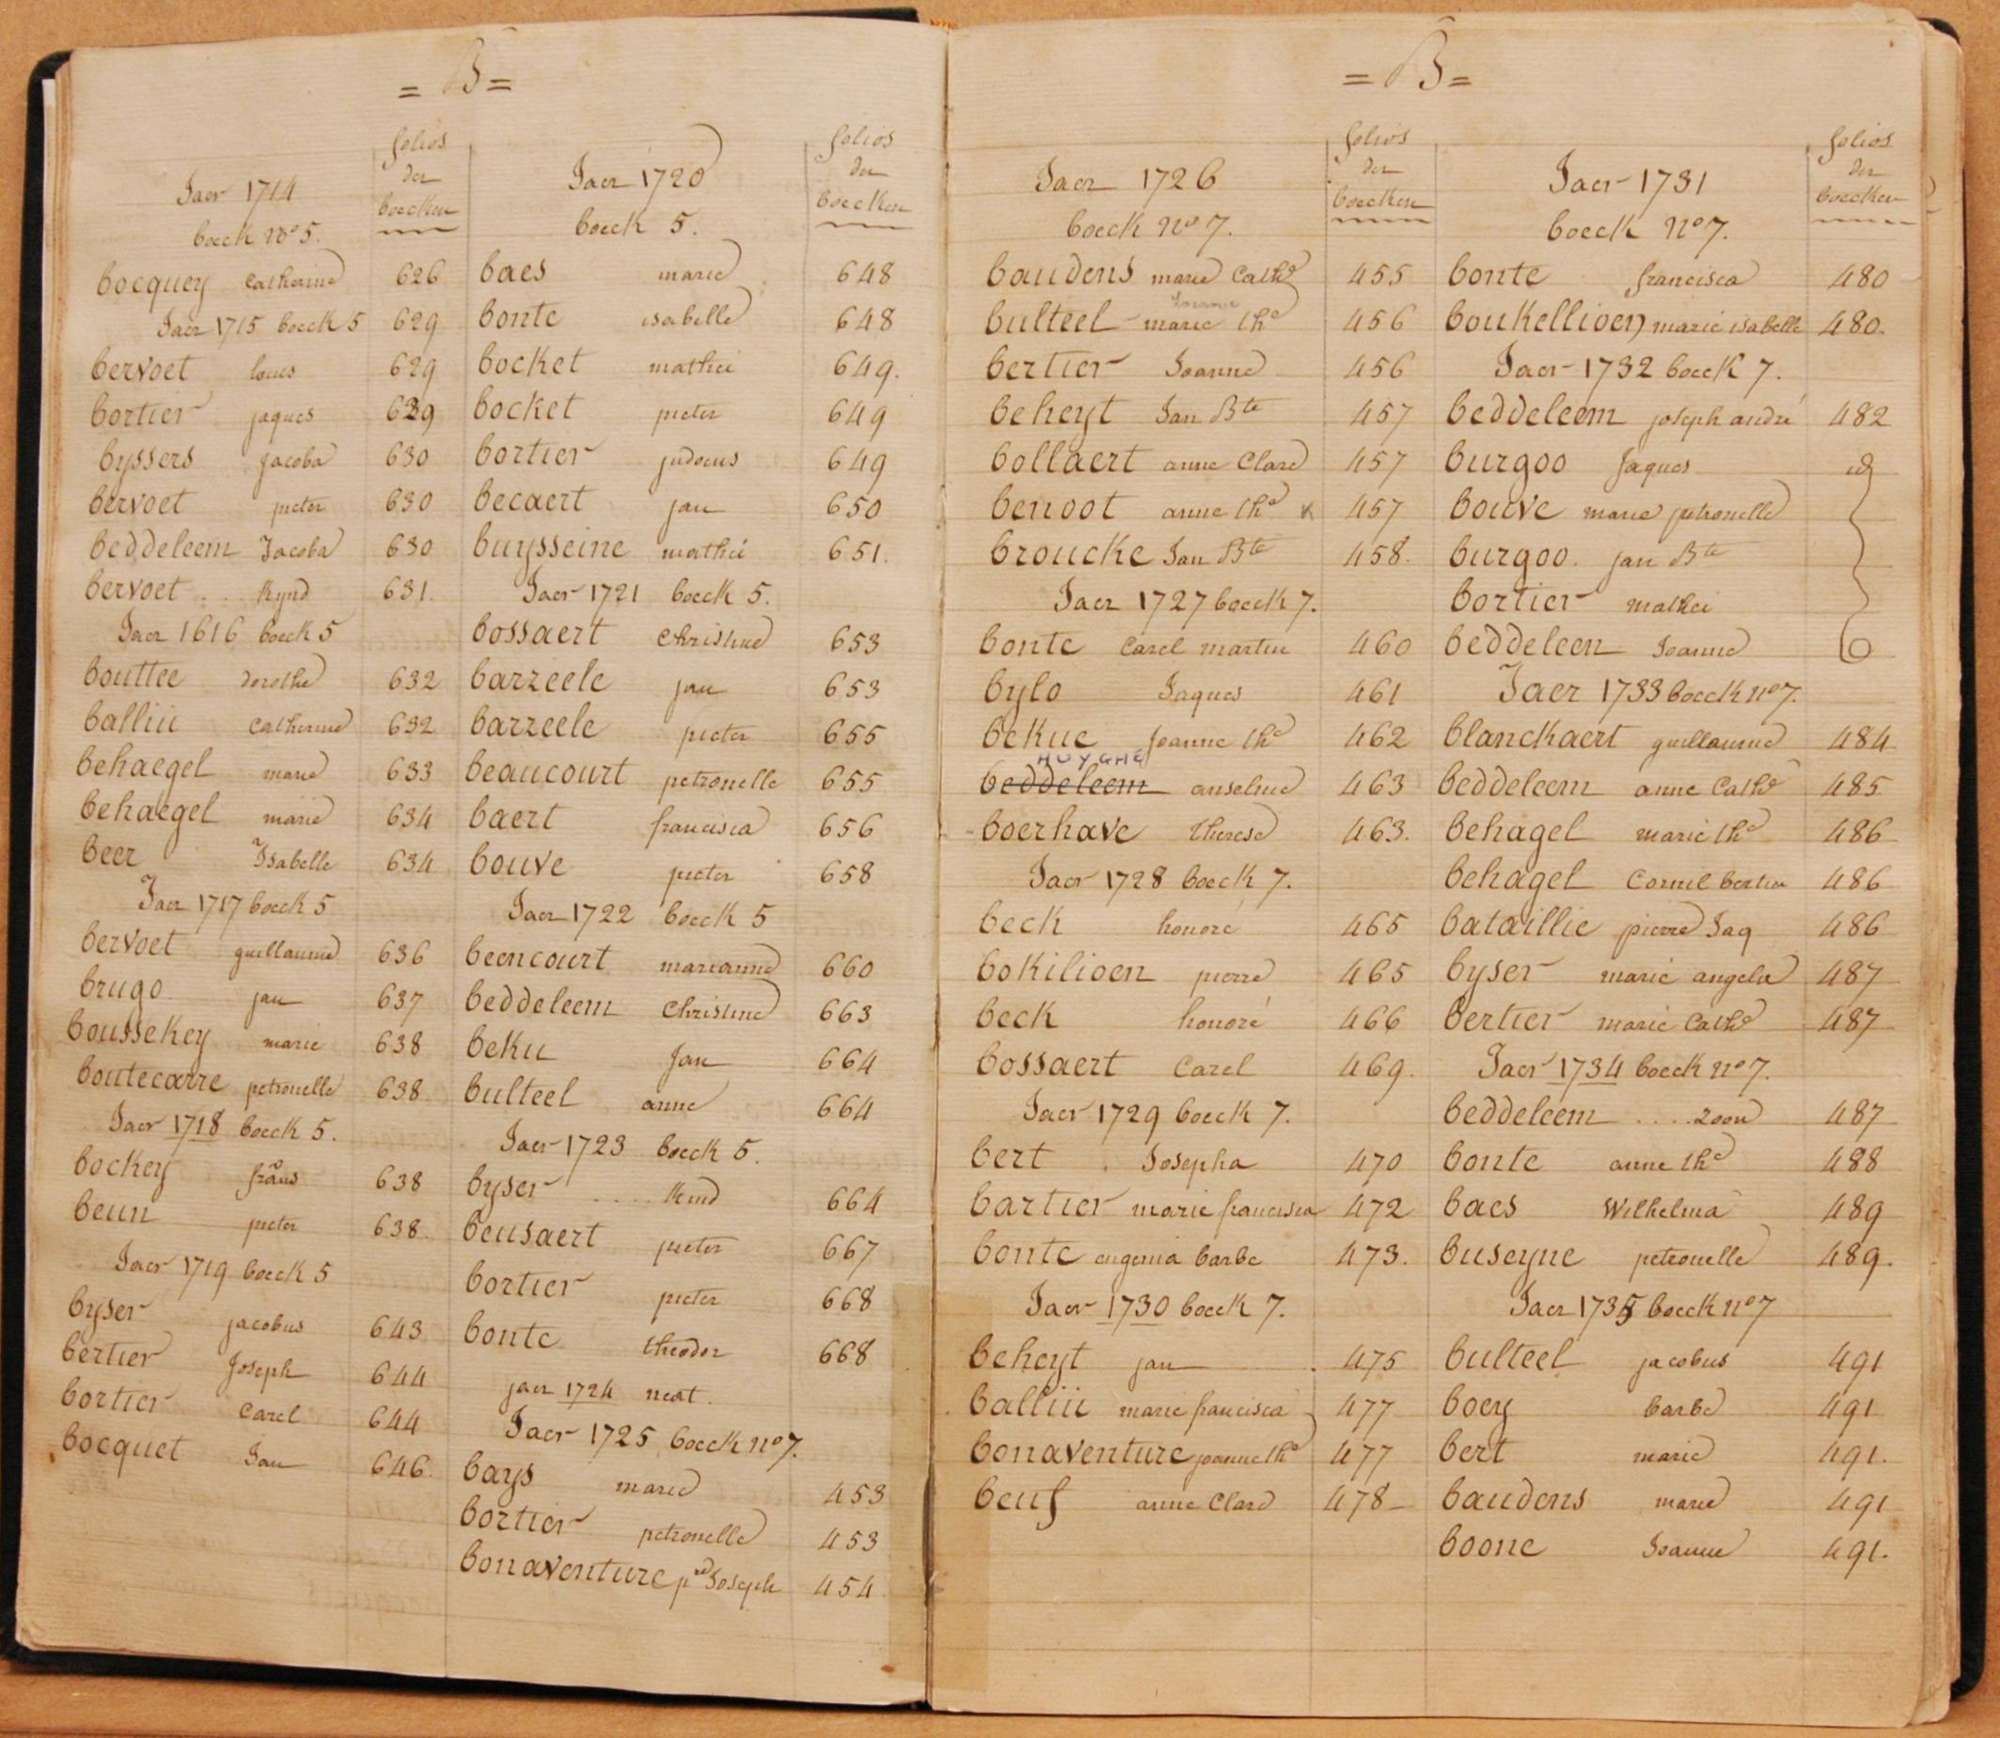 = B =
folios
der
boecken
Jaer 1714
boeck No 5.
bocquey Catherine 626
Jaer 1715 boeck 5 629
bervoet louis 629
bortier jaques 629
byssers jacoba 630
bervoet pieter 630
beddeleem Jacoba 630
bervoet .. Kynd 631.
Jaer 1616 boeck 5
bouttee dorothe 632
balliu Catherine 632
behaegel marie 633
behaegel marie 634
beer Isabelle 634
Jaer 1717 boeck 5
bervoet guillaume 636
brugo jan 637
boussekey marie 638
boutecarre petronelle 638
Jaer 1718 boeck 5.
bockey frans 638
beun pieter 638.
Jaer 1719 boeck 5
byser jacobus 643
bertier Joseph 644
bortier Carel 644
bocquet Jan 646.
folios
der
boecken
Jaer 1720
boeck 5.
baes marie 648
bonte isabelle 648
bocket mathei 649.
bocket pieter 649
bortier judocus 649
becaert jan 650
buysseine mathei 651.
Jaer 1721 boeck 5.
bossaert Christine 653
barzeele jan 653
barzeele pieter 655
beaucourt petronelle 655
baert francisca 656
bouve pieter 658
Jaer 1722 boeck 5
beencourt marianne 660
beddeleem Christine 663
beku Jan 664
bulteel anne 664
Jaer 1723 boeck 5.
byser .... Kind 664
beusaert pieter 667
bortier pieter 668
bonte theodor 668
jaer 1724 neat.
Jaer 1725 boeck No 7.
bays marie 453
bortier petronelle 453
bonaventure pre Joseph 454
= B =
folios
der
boecken
Jaer 1726
boeck No 7.
baudens marie Cathe 455
bulteel marie the 456
bertier Joanne 456
beheyt Jan Bte 457
bollaert anne Clare 457
benoot anne the x 457
broucke Jan Bte 458.
Jaer 1727 boeck 7.
bonte Carel martin 460
bylo Jaques 461
bekue Joanne the 462
HUYGHE
beddeleem anselme 463
boerhave therese 463.
Jaer 1728 boeck 7.
beck honoré 465
bokilioen pierre 465
beck honoré 466
bossaert Carel 469.
Jaer 1729 boeck 7.
bert Josepha 470
bartier marie francisca 472
bonte eugenia barbe 473.
Jaer 1730 boeck 7.
beheyt jan 475
balliu marie francisca 477
bonaventure joanne the 477
beuf anne Clare 478
folios
der
boecken
Jaer 1731
boeck No 7.
bonte francisca 480
boukellioen marie isabelle 480.
Jaer 1732 boeck 7.
beddeleem joseph andré 482
burgoo Jaques id
bouve marie petronelle
burgoo. jan Bte
bortier mathei
beddeleen Joanne
Jaer 1733 boeck No 7.
blanckaert guillaume 484
beddeleem anne Cathe 485
behagel marie the 486
behagel Cornil bertin 486
bataillie pierre Jaq 486
byser marie angela 487
bertier marie Cathe 487
Jaer 1734 boeck No 7.
beddeleem .... zoon 487
bonte anne the 488
baes Wilhelma 489
buseyne petronelle 489.
Jaer 1735 boeck No 7
bulteel jacobus 491
boey barbe 491
bert marie 491.
baudens marie 491
boone Joanne 491.